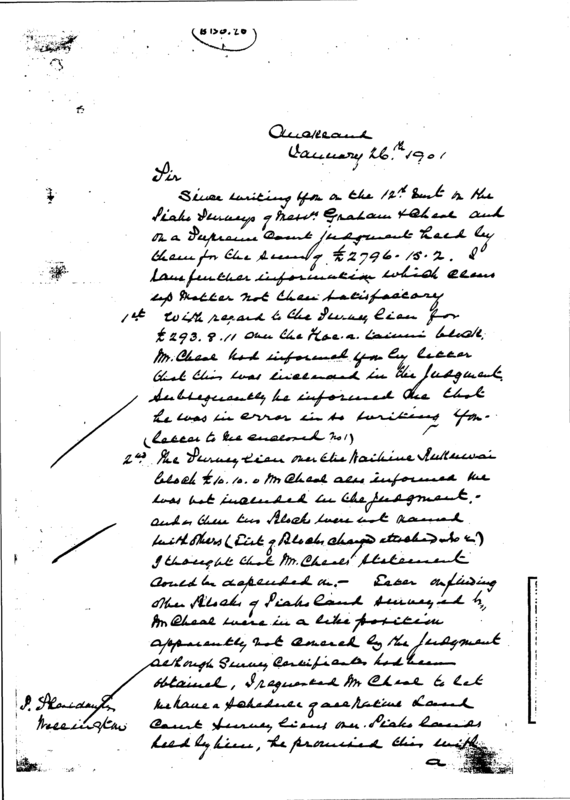 B 156.26
Auckland
January 26th 1901
Sir
Since writing you on the 12th Inst on the
Piako Surveys of Messrs Graham & Cheal and
on a Supreme Court Judgment held by
them for the sum of £2796-15-2. I
have further information which clears
up matter not then satisfactory
1st With regard to the Survey lien for
£293.8.11 over the block.
Mr. Cheal had informed you by letter
that this was included in the Judgment,
subsequently he informed me that
he was in error in so writing you-
(letter to me enclosed No 1)
2nd The Survey lien over the
block £10.10.0 Mr Cheal also informed me
was not included in the Judgment.-
and as these two Blocks were not named
with others (List of Blocks charged attached)
I thought that Mr. Cheals' statement
could be depended on.- Later on finding
other Blocks of Piako land surveyed by
Mr Cheal were in a like position
apparently not covered by the Judgment
although Survey Certificates had been
obtained, I requested Mr Cheal to let
me have a Schedule of all Native Land
Court Survey liens over Piako lands
held by him, he promised this with
P. Sheridan
Wellington
a